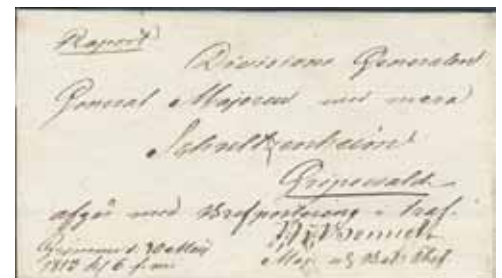 Raport
Divisions Generalen
General Majoren med mera
Schultzenheim
Gripswald
afgår med Brefpostering i Traf.
Grimmen d. 30 Maij
1813 kl 6 f.m.
Maj. och